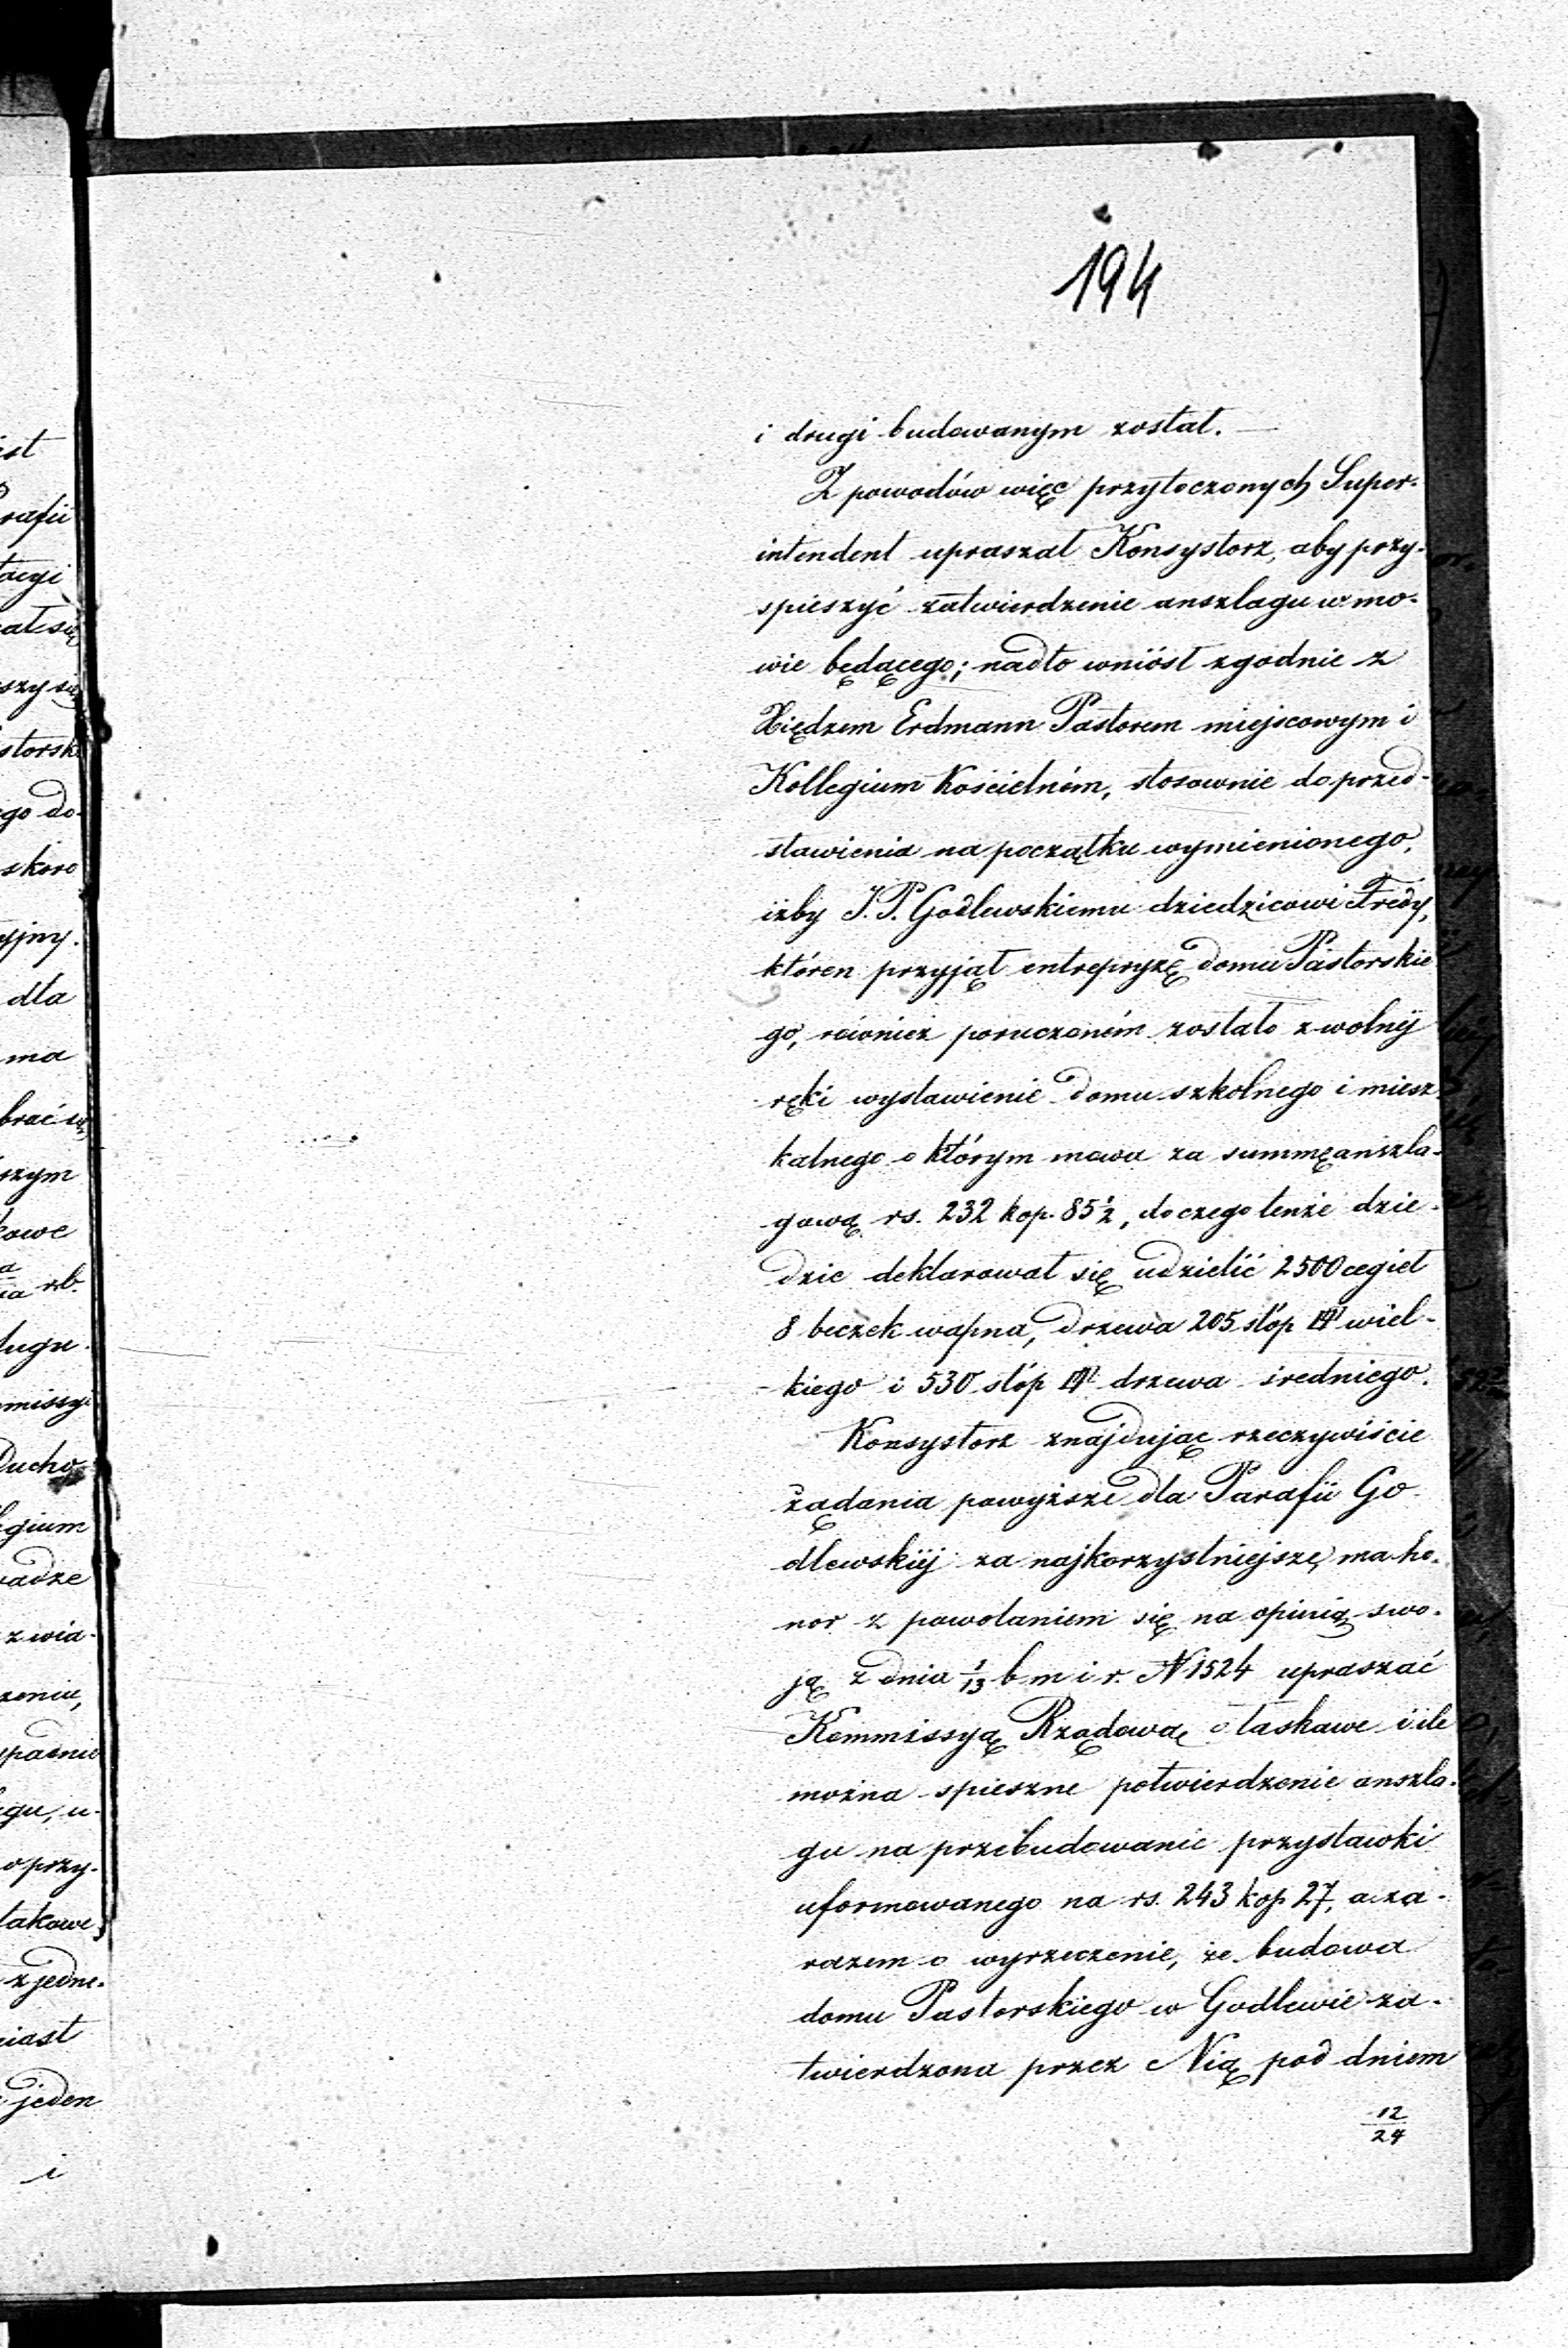 194
i drugi budowanym został. —
Z powodów więc przytoczonych Super-
intendent upraszał Konsystorz, aby przy-
spieszyć zatwierdzenie anszlagu w mo-
wie będącego; nadto wniósł zgodnie z
Xiędzem Erdmann Pastorem miejscowym i
Kollegium Kościelném, stosownie do przed-
stawienia na początku wymienionego,
iżby J. P. Godlewskiemu dziedzicowi Fredy,
któren przyjął entrepryzę domu Pastorskie
go, również poruczoném zostało z wolnéj
ręki wystawienie domu szkolnego i miesz
kalnego o którym mowa za summę anszla-
gową rs. 232 kop. 85½, do czego tenże dzie-
dzic deklarował się udzielić 2500 cegieł
8 beczek wapna, drzewa 205 stóp wiel-
kiego i 530 stóp drzewa średniego.
Konsystorz znajdując rzeczywiście
żądania powyższe dla Parafii Go-
dlewskiéj za najkorzystniejsze, ma ho-
nor z powołaniem się na opinią swo-
ją z dnia 1/13 b m i r. N 1524 upraszać
Kommissyą Rządową o łaskawe i ile
można spieszne potwierdzenie anszla-
gu na przebudowanie przystawki
uformowanego na rs. 243 kop 27, a za-
razem o wyrzeczenie, że budowa
domu Pastorskiego w Godlewie za-
twierdzona przez Nią pod dniem
12/24
ist
rafii
tacyi
ał się
szy się
storsk
go do
skoro
yjny.
dla
ma
brać się
szym
kowe
rb.
ługu
missyi
Ducho
gium
adze
z wia-
zeniu,
padnie
gu, u-
o przy-
takowe
z jedne-
iast
jeden
i